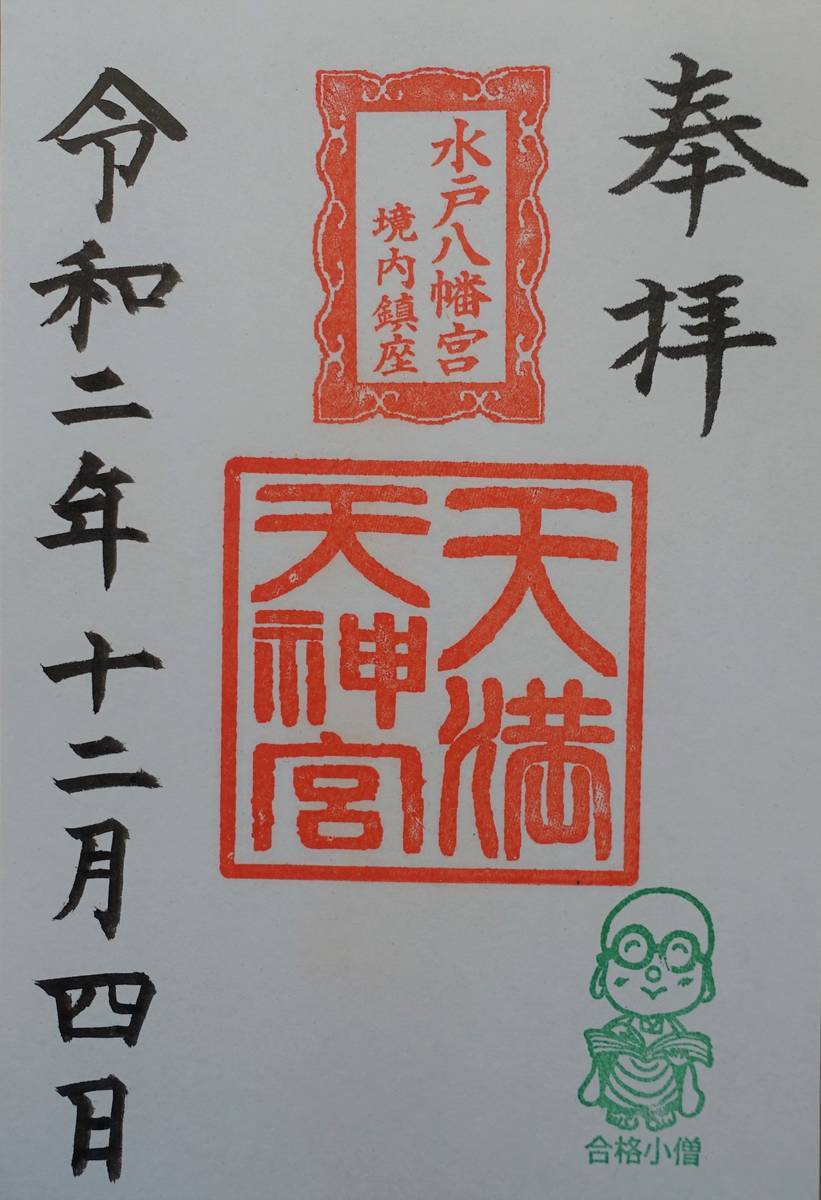 奉拝
水戸八幡宮
境内鎮座
天満
天神宮
令和二年十二月四日
合格小僧